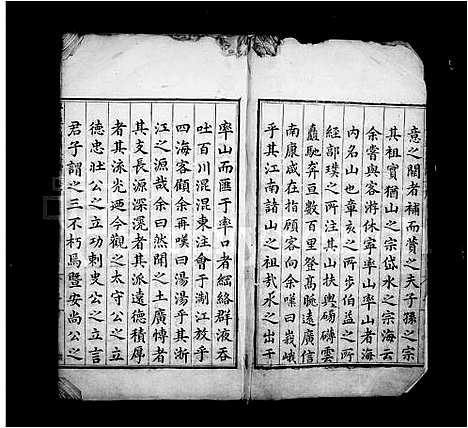 意之闕者補而贊之夫子孫之宗
其祖實猶山之宗岱水之宗海云
余嘗與客游休寧率山率山者海
内名山也章亥之所步伯益之所
經郭璞之所注其山扶輿磅礴雲
矗馳奔亘數百里登高眺遠廣信
南康咸在指顧客向余嘆曰峩峨
乎其江南諸山之祖㢤水之出于
率山而匯于率口者縚絡群液吞
吐百川混混東注會于淛江放乎
四海客顧余再嘆曰湯湯乎其浙
江之源哉余曰然閒之土廣傳者
其支長源深濅者其派遠德積厚
者其流光迺今觀之太守公之立
德忠壯公之立功刺史公之立言
君子謂之三不朽焉暨安尚公之